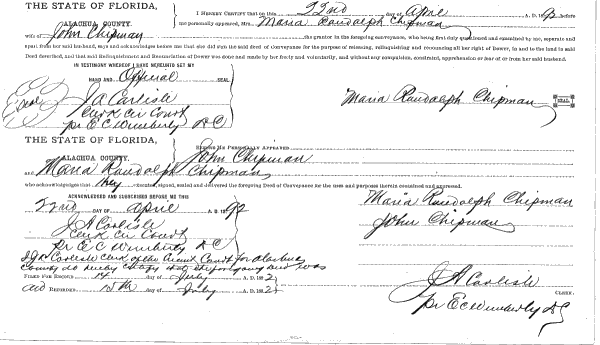 THE STATE OF FLORIDA,
ALACHUA COUNTY.
I HEREBY CERTIFY that on this 22nd day of April A. D. 1892 before
me personally appeared, Mrs. Maria Randolph Chipman
wife of John Chipman
the grantor in the foregoing conveyance, who being first duly examined and examined by me, separate and
apart from her said husband, says and acknowledges before me that she did sign the said deed of Conveyance for the purpose of releasing, relinquishing and renouncing all her right of Dower, in and to the land in said
Deed described, and that said Relinquishment and Renunciation of Dower was done and made by her freely and voluntarily, and without any compulsion, constraint, apprehension or fear of or from her said husband.
IN TESTIMONY WHEREOF I HAVE HEREUNTO SET MY
HAND AND Official
Seal
J A Carlisle
Clerk Cir Court
pr E C Wimberly D C
Maria Randolph Chipman SEAL.
THE STATE OF FLORIDA,
ALACHUA COUNTY.
BEFORE ME PERSONALLY APPEARED
John Chipman
and Maria Randolph Chipman
who acknowledges that they executed, signed, sealed and delivered the foregoing Deed of Conveyance for the uses and purposes therein contained and expressed.
ACKNOWLEDGED AND SUBSCRIBED BEFORE ME THIS
22nd DAY OF April A D 1892
Maria Randolph Chipman
John Chipman
J A Carlisle
Clerk Cir Court
Pr E C Wimberly D C
I J A Carlisle Clerk of the Circuit Court for Alachua
County do hereby certify that the foregoing deed was
FILED FOR RECORD 14 day of July A. D. 1892
and RECORDED 15th day of July A. D. 1892
J A Carlisle CLERK.
pr E C Wimberly D C